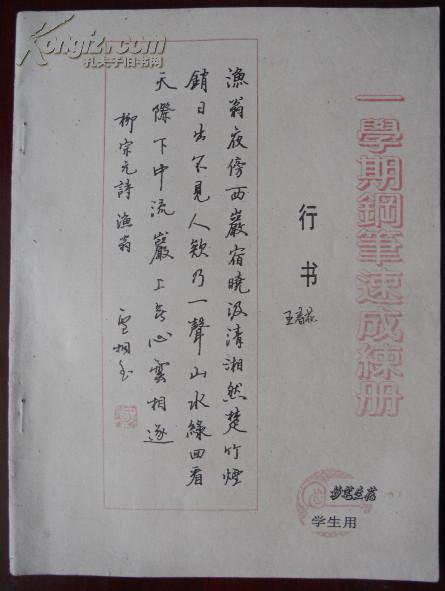 Kongfz.com
孔夫子旧书网
一學期鋼筆速成練册
行书
王
漁翁夜傍西巖宿曉汲清湘然楚竹煙
銷日出不見人欸乃一聲山水綠回看
天際下中流巖上無心雲相逐
柳宗元詩漁翁
妙笔生花
学生用